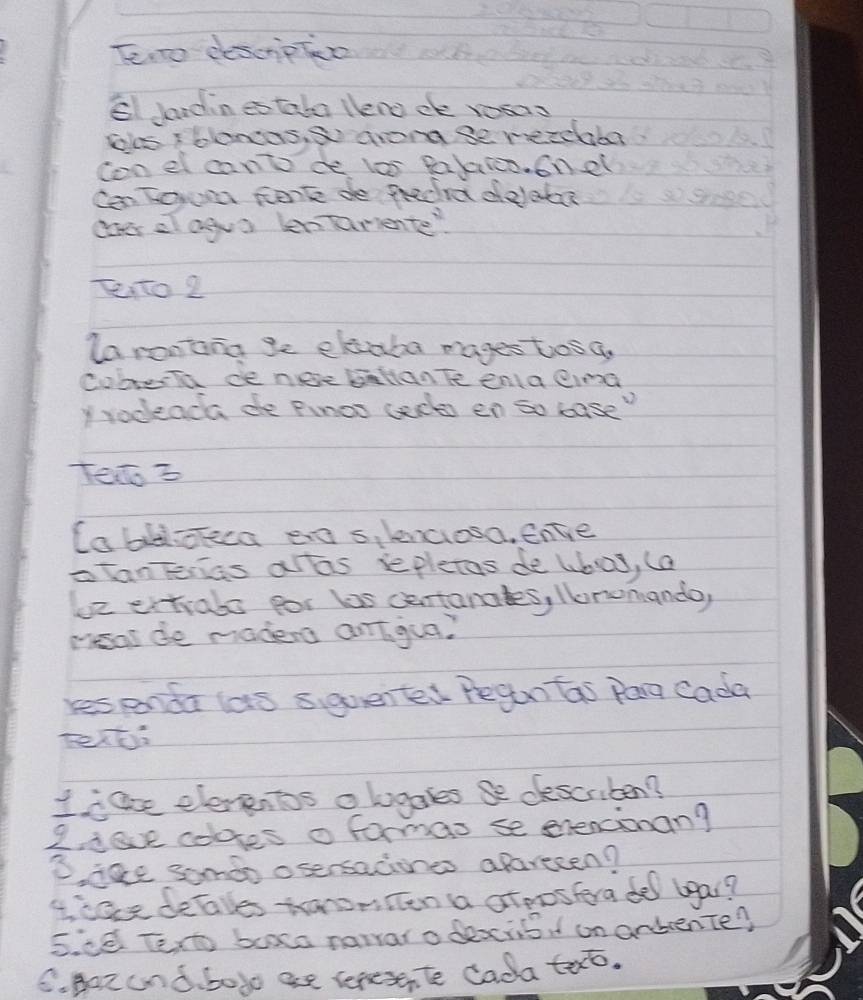 Texto descriptivo
El Jardin estaba lleno de rosas
rojas y blancas, su aroma se mezclaba
con el canto de los Pajaros. En el
centro una fuente de piedra dejaba
caer el agua lentamente"
Texto 2
La montaña se elevaba magestiosa,
cubierta de nieve brillante en la cima
y rodeada de Pinos verdes en so base"
Texto 3
La biblioteca era silenciosa. Entre
estanterias altas repletas de libros, la
luz extraba por los ventanales, iluminando,
mesas de madera antigua."
responda las siguientes Preguntas Para cada
texto:
1. ¿Que elementos o lugares Se describen?
2. ¿Que colores o formas se mencionan?
3. ¿Que sonido o sensaciones aparecen?
4. ¿Que detalles transmiten la atmosfera del lugar?
5. ¿el Texto busca narrar o describir un ambiente?
6. Haz un dibojo que represente Cada texto.